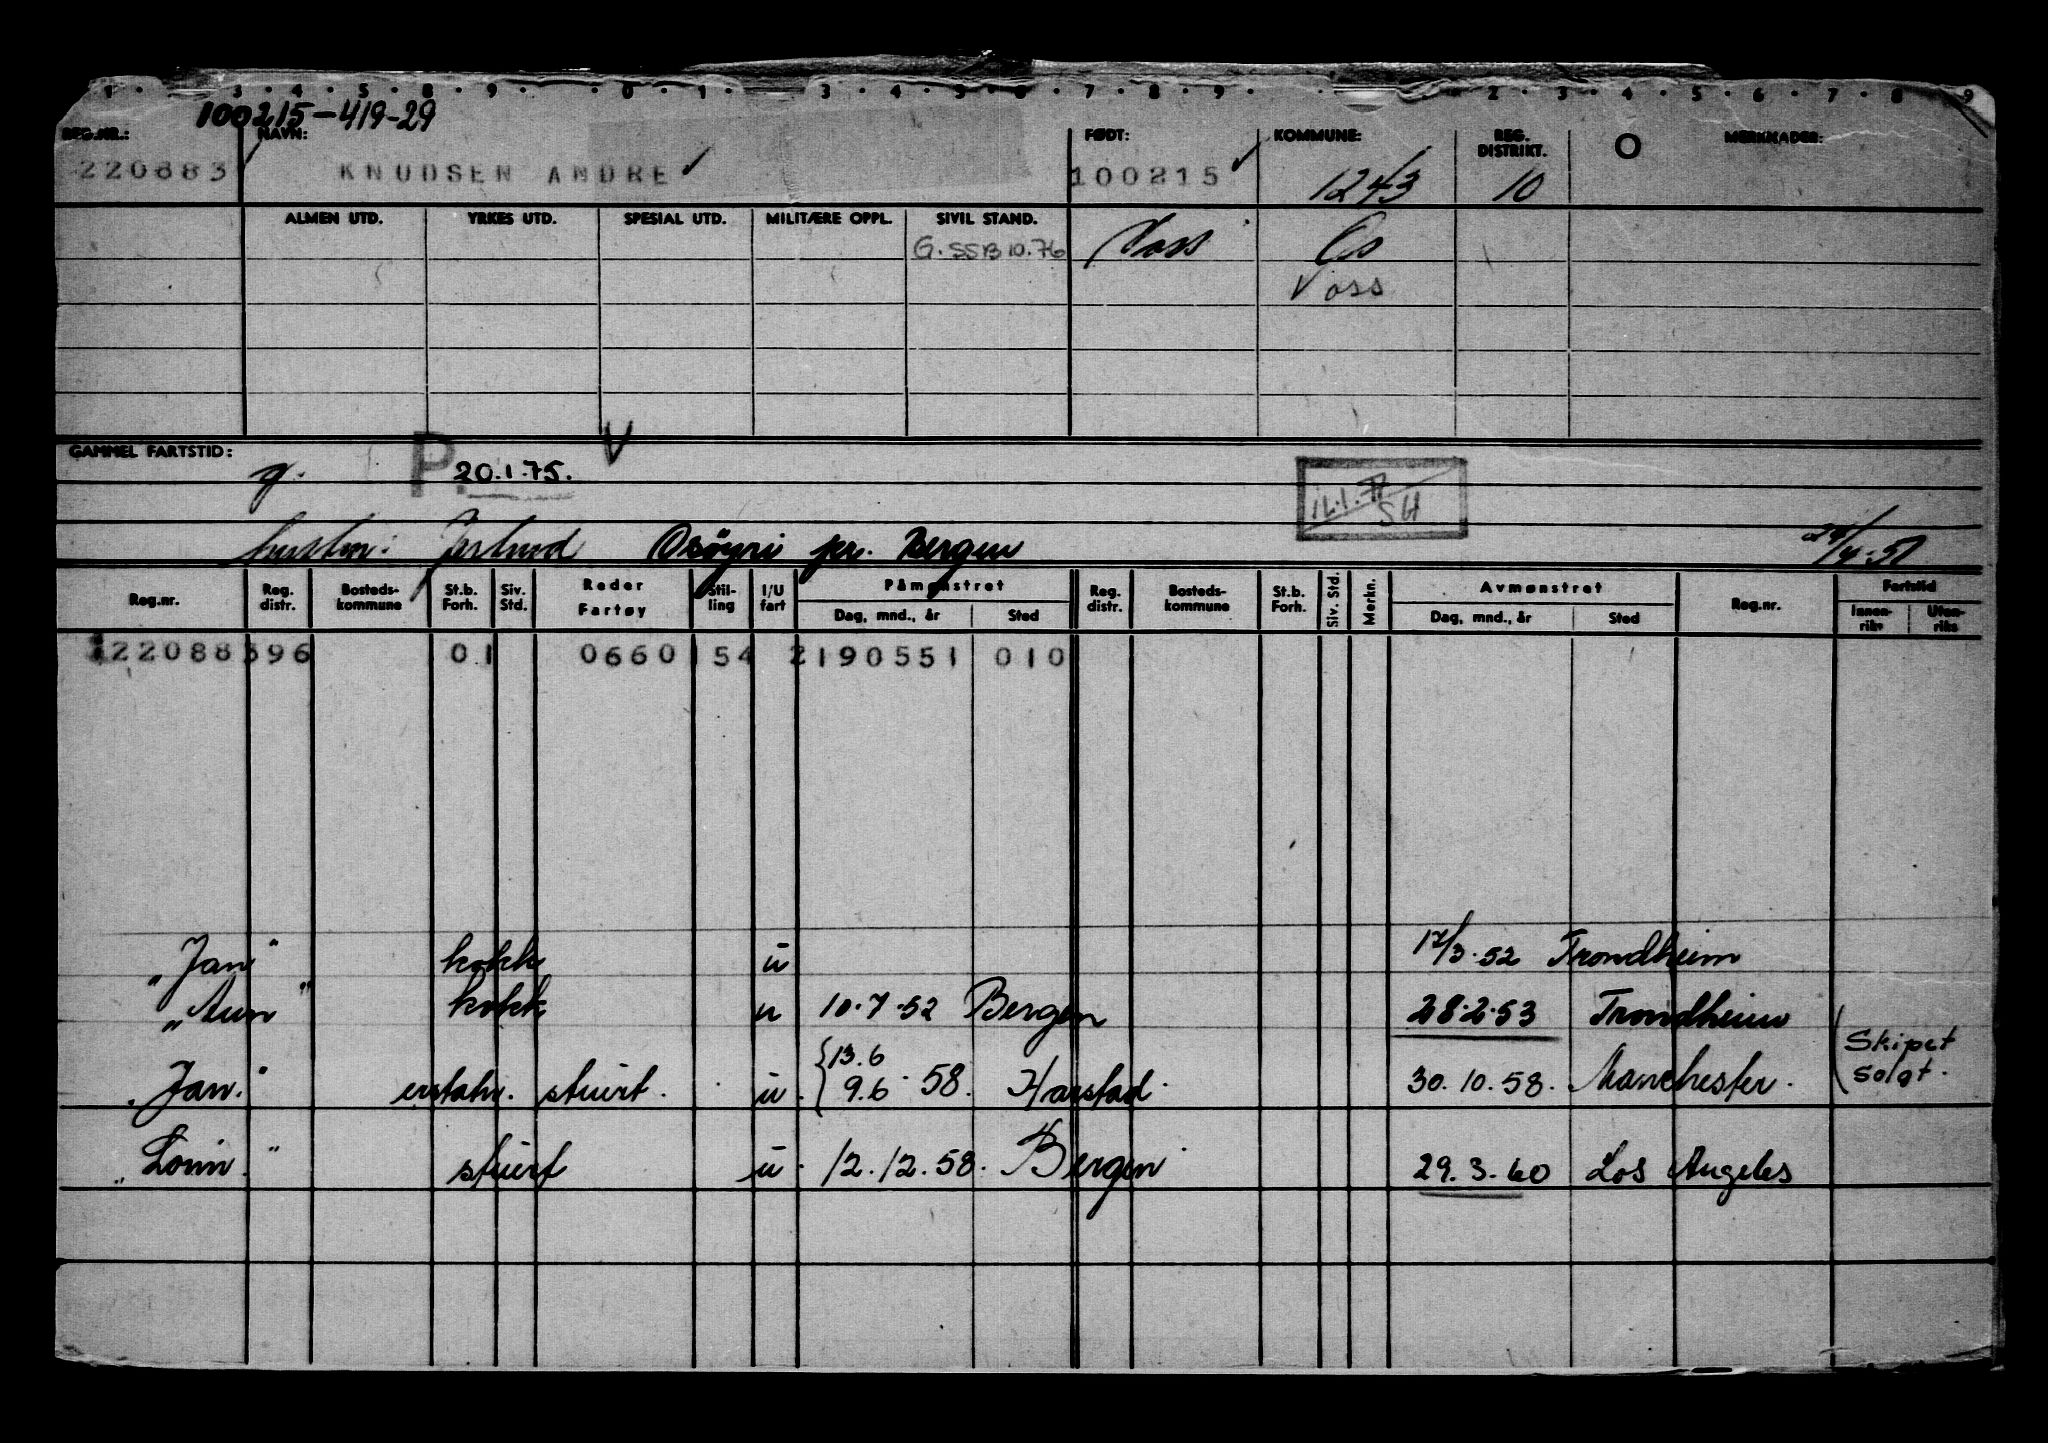 1 3 4 5 8 9 0 1 3 4 5 6 7 8 9 2 3 4 5 6 7 8 9
100215-419-29
REG.NR.: NAVN: FØDT: KOMMUNE: REG. DISTRIKT. O MERKNADER:
220883 KNUDSEN ANDRE 100215 1243 10
ALMEN UTD. YRKES UTD. SPESIAL UTD. MILITÆRE OPPL. SIVIL STAND.
G. SSB 10.76 Voss Os
Voss
GAMMEL FARTSTID:
g. P. 20.1.75. V
SH
hustru: Jertrud Osöyri pr. Bergen
Reg.nr. Reg. distr. Bosteds-kommune St.b. Forh. Siv. Std. Reder Fartøy Stil-ling I/U fart Påmønstret Dag, mnd., år Sted Reg. distr. Bosteds-kommune St.b. Forh. Siv. Std. Merkn. Avmønstret Dag, mnd., år Sted Reg.nr. Fartstid Innen-riks Uten-riks
122088396 01 0660154 2190551 010
"Jan" kokk u 17/3.52 Trondheim
"Aun" kokk u 10.7.52 Bergen 28.2.53 Trondheim
"Jan." erstatn. stuert. u. {13.6 9.6 58. Harstad. 30.10.58. Manchester. (Skipet solgt.
"Lorin." stuert u. 12.12.58. Bergen 29.3.60 Los Angeles